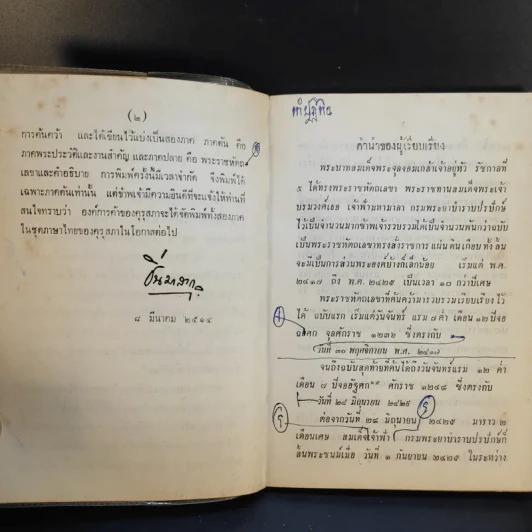 (๒)
การค้นคว้า และได้เขียนไว้แบ่งเป็นสองภาค ภาคต้น คือ
ภาคพระประวัติและงานสำคัญ และภาคปลาย คือ พระราชหัตถ
เลขาและคำอธิบาย การพิมพ์ครั้งนี้มีเวลาจำกัด จึงพิมพ์ได้
เฉพาะภาคต้นเท่านั้น แต่ข้าพเจ้ามีความยินดีที่จะแจ้งให้ท่านที่
สนใจทราบว่า องค์การค้าของคุรุสภาจะได้จัดพิมพ์ทั้งสองภาค
ในชุดภาษาไทยของคุรุสภาในโอกาสต่อไป
๘ มีนาคม ๒๕๑๔
คำนำของผู้เรียบเรียง
พระบาทสมเด็จพระจุลจอมเกล้าเจ้าอยู่หัว รัชกาลที่
๕ ได้ทรงพระราชหัตถเลขา พระราชทานสมเด็จพระเจ้า
บรมวงศ์เธอ เจ้าฟ้ามหามาลา กรมพระยาบำราบปรปักษ์
ไว้เป็นจำนวนมากข้าพเจ้ารวบรวมได้เป็นจำนวนพันกว่าฉบับ
เป็นพระราชหัตถเลขาทรงสั่งราชการ แผ่นดินเกือบทั้งสิ้น
จะมีเป็นการส่วนพระองค์บ้างก็เล็กน้อย เริ่มแต่ พ.ศ.
๒๔๑๗ ถึง พ.ศ. ๒๔๒๙ เป็นเวลา ๑๐ กว่าปีเศษ
พระราชหัตถเลขาที่ค้นคว้ามารวบรวมเรียบเรียงไว้
ได้ ฉบับแรก เริ่มแต่วันจันทร์ แรม ๗ ค่ำ เดือน ๑๒ ปีจอ
ฉอศก จุลศักราช ๑๒๓๖ ซึ่งตรงกับ
วันที่ ๓๐ พฤศจิกายน พ.ศ. ๒๔๑๗
จนถึงฉบับสุดท้ายที่ค้นได้ถึงวันจันทร์แรม ๑๒ ค่ำ
เดือน ๗ ปีจออัฐศก ศักราช ๑๒๔๘ ซึ่งตรงกับ
วันที่ ๒๘ มิถุนายน ๒๔๒๙
ต่อจากวันที่ ๒๘ มิถุนายน ๒๔๒๙ มาราว ๒
เดือนเศษ สมเด็จเจ้าฟ้า กรมพระยาบำราบปรปักษ์ก็
สิ้นพระชนม์เมื่อ วันที่ ๑ กันยายน ๒๔๒๙ ในระหว่าง